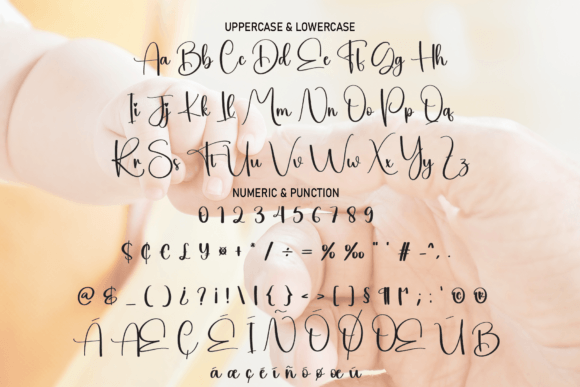 UPPERCASE & LOWERCASE
Aa Bb Cc Dd Ee Ff Gg Hh
Ii Jj Kk Ll Mm Nn Oo Pp Qq
Rr Ss Tt Uu Vv Ww Xx Yy Zz
NUMERIC & PUNCTION
0 1 2 3 4 5 6 7 8 9
$ ₵ € £ ¥ ¤ + * / ÷ = % ‰ " ' # – ^ , .
@ & _ ( ) ¿ ? ¡ ! \ | { } < > [ ] § ¶ ; : ' © ®
Á Æ Ç É Í Ñ Ó Ø Œ Ú ß
á æ ç é í ñ ó ø œ ú